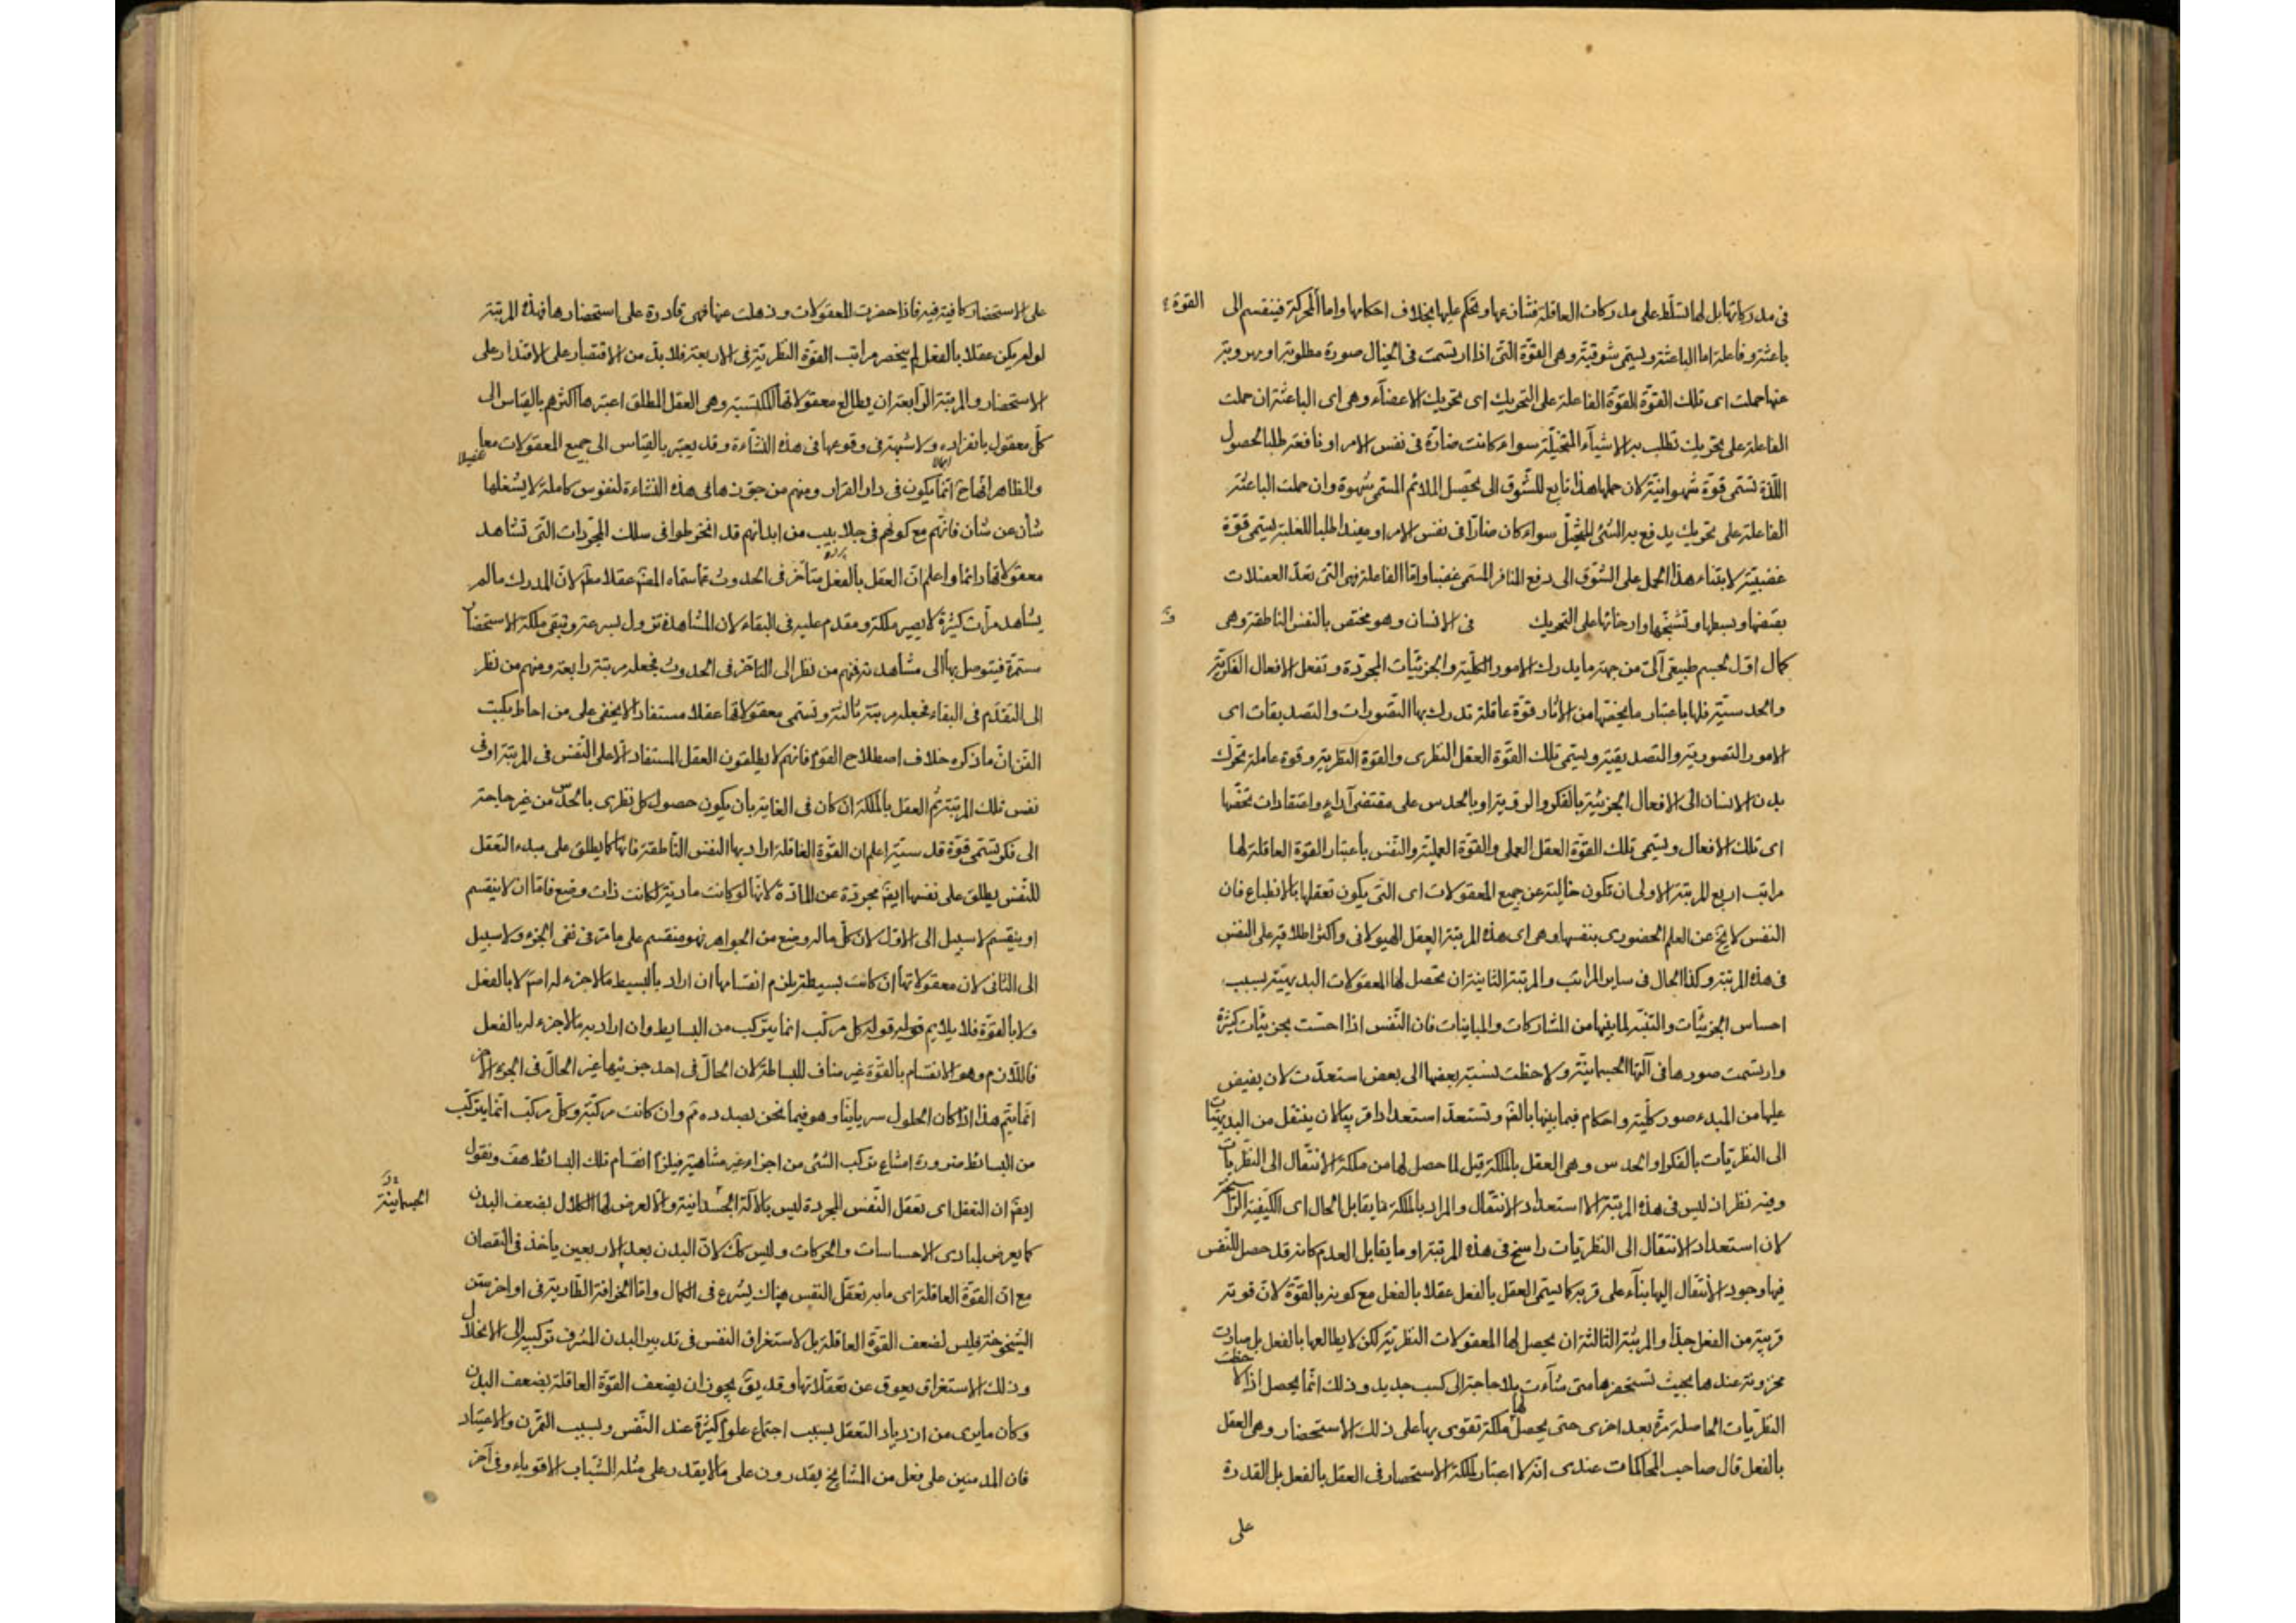 فى مدركاتها بل لها تسلط على مدركات العاقلة فتنازعها وتحكم عليها بخلاف احكامها واما المحركة فينقسم الى
القوة
باعثة وفاعلة اما الباعثة ويسمى شوقية وهى القوة التى اذا ارتسمت فى الخيال صورة مطلوبة او مهروبة
عنها حملت اى تلك القوة القوة الفاعلة على التحريك اى تحريك الاعضاء وهى اى الباعثة ان حملت
الفاعلة على تحريك تطلب به الاشياء المتخيلة سواء كانت ضارة فى نفس الامر او نافعة طلبا لحصول
اللذة تسمى قوة شهوانية لان حملها هذا تابع للشوق الى تحصيل الملائم المسمى شهوة وان حملت الباعثة
الفاعلة على تحريك يدفع به الشئ المتخيل سواء كان ضارا فى نفس الامر او مفيدا طلبا للغلبة يسمى قوة
غضبية لابتناء هذا الحمل على الشوق الى دفع المنافر المسمى غضبا واما الفاعلة فهى التى تعد العضلات
بقبضها وبسطها وتشنجها وارخائها على التحريك فى الانسان وهو مختص بالنفس الناطقة وهى
كمال اول لجسم طبيعى آلى من جهة ما يدرك الامور الكلية والجزئيات المجردة وتفعل الافعال الفكرية
والحدسية فلها باعتبار ما يخصها من الاثار قوة عاقلة تدرك بها التصورات والتصديقات اى
الامور التصورية والتصديقية ويسمى تلك القوة العقل النظرى والقوة النظرية وقوة عاملة تحرك
بدن الانسان الى الافعال الجزئية بالفكر والروية او بالحدس على مقتضى آراء واعتقادات تخصها
اى تلك الافعال ويسمى تلك القوة العقل العملى والقوة العملية والنفس باعتبار القوة العاقلة لها
مراتب اربع المرتبة الاولى ان تكون خالية عن جميع المعقولات اى التى يكون تعقلها بالانطباع فان
النفس لا يخ عن العلم الحضورى بنفسها وهى اى هذه المرتبة العقل الهيولانى واكثر اطلاقه على النفس
فى هذه المرتبة وكذا الحال فى ساير المراتب والمرتبة الثانية ان تحصل لها المعقولات البديهية بسبب
احساس الجزئيات والتنبه لما بينها من المشاركات والمباينات فان النفس اذا احست بجزئيات كثيرة
وارتسمت صورها فى آلتها الجسمانية ولاحظت نسبة بعضها الى بعض استعدت لان يفيض
عليها من المبدء صور كلية واحكام فيما بينها بالضم وتستعد استعدادا قريبا لان ينتقل من البديهيات
الى النظريات بالفكر او الحدس وهى العقل بالملكة قيل لما حصل لها من ملكة الانتقال الى النظريات
وفيه نظر اذ ليس فى هذه المرتبة الا استعداد الانتقال والمراد بالملكة ما يقابل الحال اى الكيفية الراسخة
لان استعداد الانتقال الى النظريات راسخ فى هذه المرتبة او ما يقابل العدم كانه قد حصل للنفس
فيها وجود الانتقال اليها بناء على قربه كما يسمى العقل بالفعل عقلا بالفعل مع كونه بالقوة لان قوته
قريبة من الفعل جدا والمرتبة الثالثة ان يحصل لها المعقولات النظرية لكن لا يطالعها بالفعل بل صارت
مخزونة عندها بحيث تستحضرها متى شاءت بلا حاجة الى كسب جديد وذلك انما يحصل اذا لاحظت
النظريات الحاصلة مرة بعد اخرى حتى يحصل لها ملكة تقوى بها على ذلك الاستحضار وهى العقل
بالفعل قال صاحب المحاكمات عندى انه لا اعتبار لملكة الاستحضار فى العقل بالفعل بل القدرة
على
على الاستحضار كافية فيه فاذا حضرت المعقولات وذهلت عنها فهى قادرة على استحضارها فهذه المرتبة
لو لم يكن عقلا بالفعل لم ينحصر مراتب القوة النظرية فى الاربعة فلا بد من الاقتصار على الاقتدار على
الاستحضار والمرتبة الرابعة ان يطالع معقولاتها المكتسبة وهى العقل المطلق اعتبرها اكثرهم بالقياس الى
كل معقول بانفراده ولا شبهة فى وقوعها فى هذه النشاءة وقد يعتبر بالقياس الى جميع المعقولات معا
والظاهر انها ح انما يكون فى دار القرار ومنهم من جوزها فى هذه النشاءة لنفوس كاملة لا يشغلها
شأن عن شأن فانهم مع كونهم فى جلابيب من ابدانهم قد انخرطوا فى سلك المجردات التى تشاهد
معقولاتها دائما واعلم ان العقل بالفعل متأخر فى الحدوث عما سماه المص عقلا مطم لان المدرك ما لم
يشاهد مرات كثيرة لا يصير ملكة ومقدم عليه فى البقاء لان المشاهدة تزول بسرعة وتبقى ملكة الاستحضار
مستمرة فيتوصل بها الى مشاهدته فمنهم من نظر الى التاخر فى الحدوث فجعله مرتبة رابعة ومنهم من نظر
الى التقدم فى البقاء فجعله مرتبة ثالثة وتسمى معقولاتها عقلا مستفادا لا يخفى على من احاط بكتب
الفن ان ما ذكره خلاف اصطلاح القوم فانهم لا يطلقون العقل المستفاد الا على النفس فى المرتبة او فى
نفس تلك المرتبة ثم العقل بالملكة ان كان فى الغاية بان يكون حصول كل نظرى بالحدس من غير حاجة
الى فكر تسمى قوة قدسية اعلم ان القوة العاقلة اراد بها النفس الناطقة فانها كما يطلق على مبدء التعقل
للنفس يطلق على نفسها ايض مجردة عن المادة لانها لو كانت مادية لكانت ذات وضع فاما ان لا ينقسم
او ينقسم لا سبيل الى الاول لان كل ما له وضع من الجواهر فهو منقسم على ما مر فى نفى الجزء ولا سبيل
الى الثانى لان معقولاتها ان كانت بسيطة يلزم انقسامها ان اراد بالبسيط ما لا جزء له اصلا لا بالفعل
ولا بالقوة فلا يلايم قوله كل مركب انما يتركب من البسايط وان اراد به ما لا جزء له بالفعل
فاللازم وهو الانقسام بالقوة غير مناف للبساطة لان الحال فى احد جزئيها غير الحال فى الجزء الاخر
انما يتم هذا اذا كان الحلول سريانيا وهو فيما نحن بصدده مم وان كانت مركبة وكل مركب انما يتركب
من البسائط ضرورة امتناع تركب الشئ من اجزاء غير متناهية فيلزم انقسام تلك البسائط هف ونقول
ايض ان التعقل اى تعقل النفس المجردة ليس بالآلة الجسدانية والا لعرض لها الكلال بضعف البدن
الجسمانية
كما يعرض لمبادى الاحساسات والحركات وليس كك لان البدن بعد الاربعين ياخذ فى النقصان
مع ان القوة العاقلة اى ما به تعقل النفس هناك يشرع فى الكمال واما الخرافة الطارية فى اواخر سن
الشيخوخة فليس لضعف القوة العاقلة بل لاستغراق النفس فى تدبير البدن المشرف تركيبه الى الانحلال
وذلك الاستغراق يعوق عن تعقلاتها وقد يق يجوز ان يضعف القوة العاقلة بضعف البدن
وكان ما يرى من ازدياد التعقل بسبب اجتماع علوم كثيرة عند النفس وبسبب التمرن والاعتياد
فان المدمنين على فعل من المشايخ يقدرون على ما لا يقدر على مثله الشباب الاقوياء وفى آخر